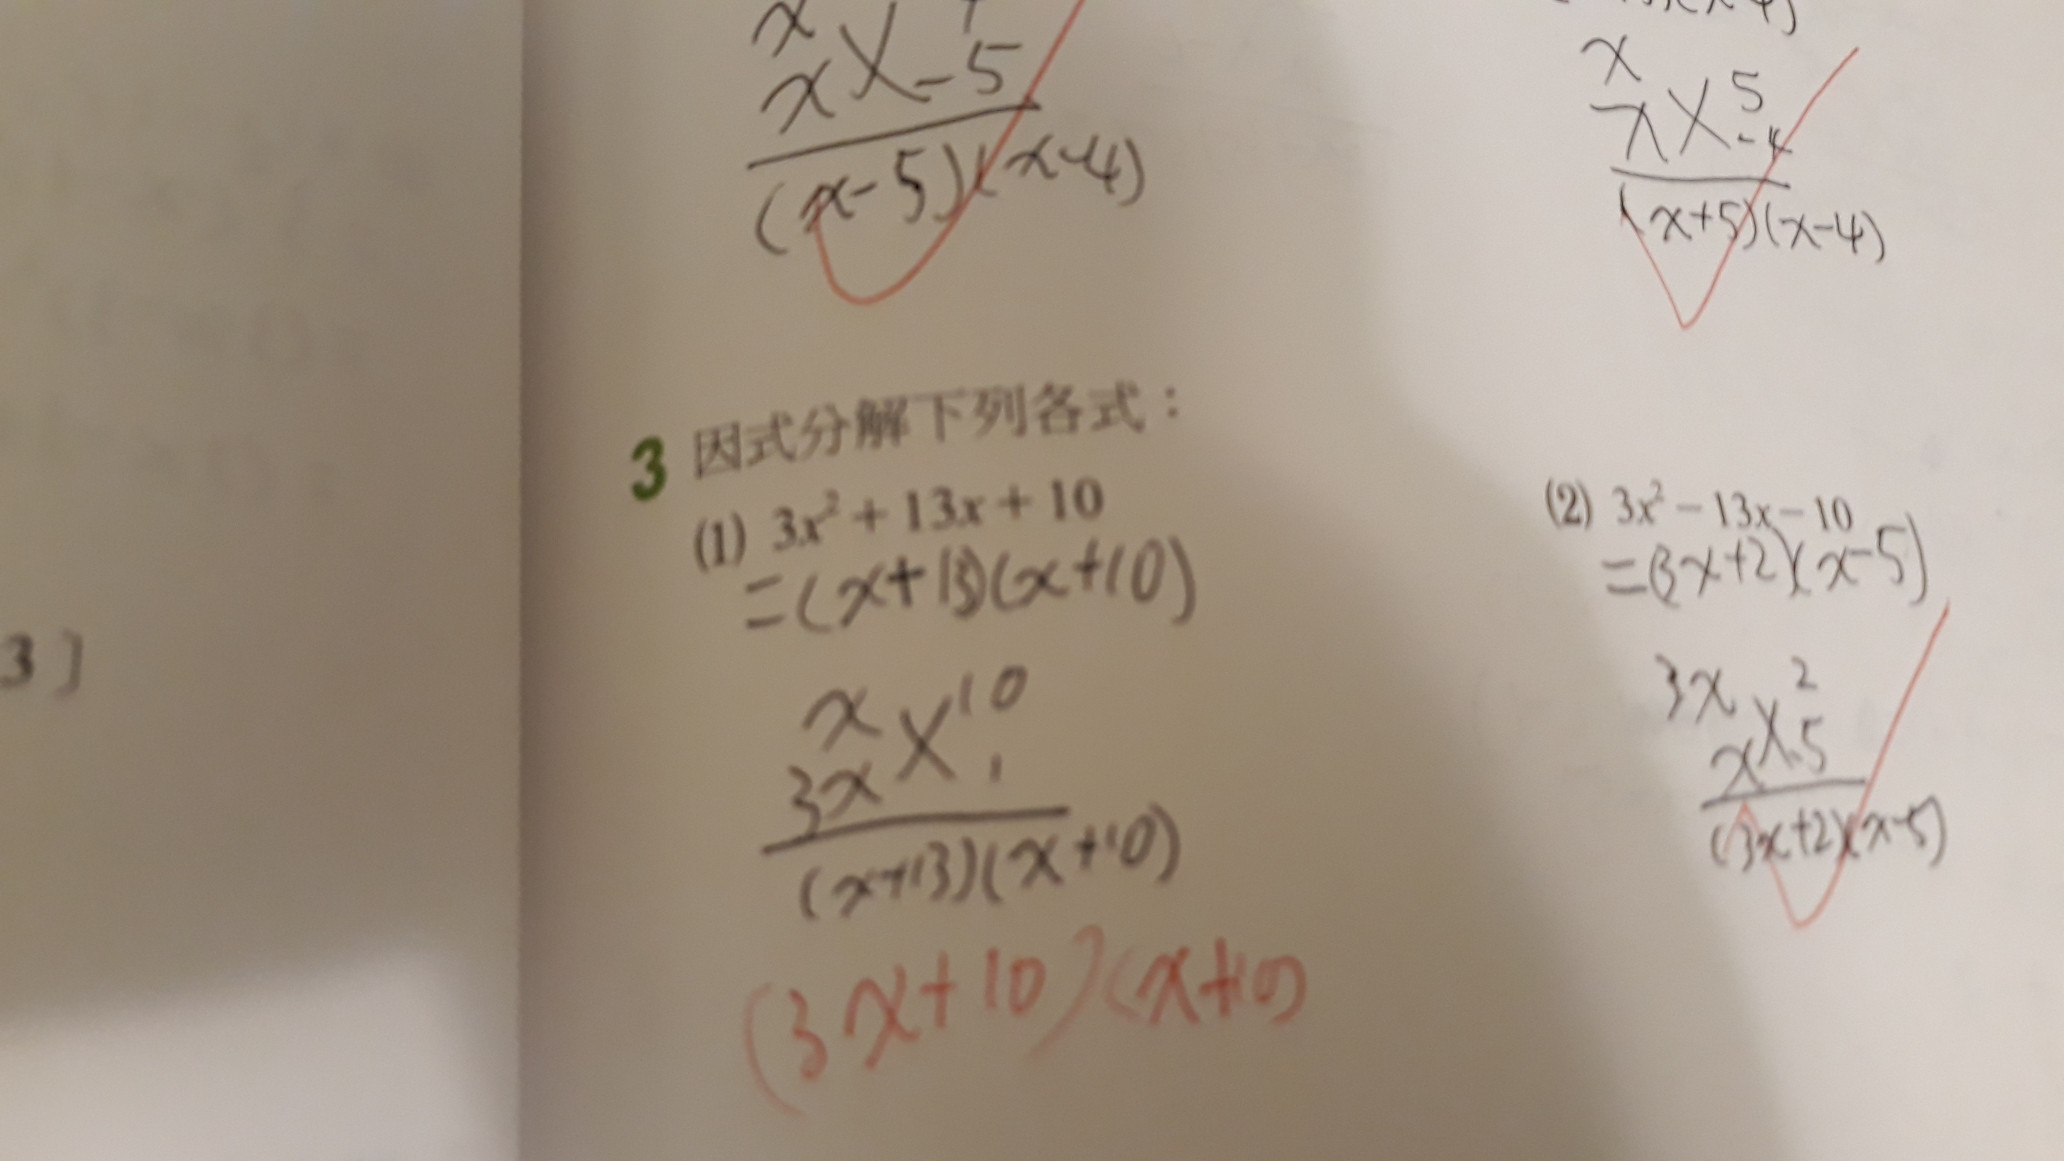 x
x X -5
(x-5)(x-4)
x
x X 5
-4
(x+5)(x-4)
3 因式分解下列各式：
(1) 3x² + 13x + 10
=(x+13)(x+10)
x X 10
3x 1
(x+13)(x+10)
(3x+10)(x+
(2) 3x² - 13x - 10
=(3x+2)(x-5)
3x X 2
x -5
(3x+2)(x-5)
3 ]